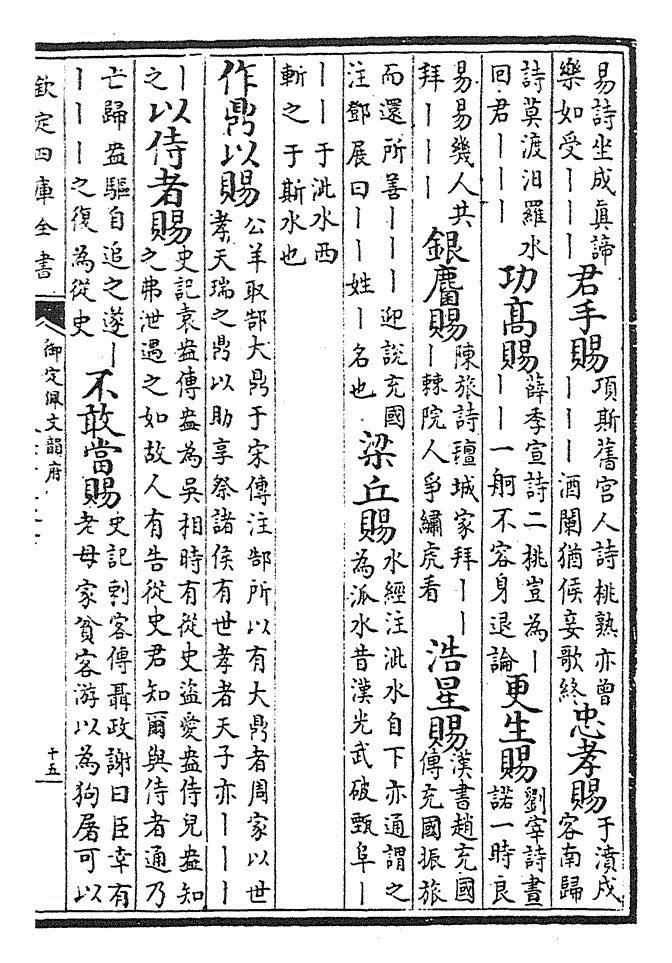 易詩坐成真諦
樂如受｜｜｜
君手賜
項斯舊宮人詩桃熟亦曾
｜｜｜酒闌猶候妾歌終
忠孝賜
于濆戍
客南歸
詩莫渡汨羅水
回君｜｜｜
功高賜
薛季宣詩二桃豈為｜
｜｜一舸不容身退論
更生賜
劉宰詩畫
諾一時良
易易幾人共
拜｜｜｜
銀麞賜
陳旅詩璮城家拜｜｜
｜棘院人爭繡虎看
浩星賜
漢書趙充國
傳充國振旅
而還所善｜｜｜迎說充國
注鄧展曰｜｜姓｜名也
梁丘賜
水經注泚水自下亦通謂之
為派水昔漢光武破甄阜｜
｜｜于泚水西
斬之于斯水也
作鼎以賜
公羊取郜大鼎于宋傳注郜所以有大鼎者周家以世
孝天瑞之鼎以助享祭諸侯有世孝者天子亦｜｜｜
｜
之
以侍者賜
史記袁盎傳盎為吳相時有從史盜愛盎侍兒盎知
之弗泄遇之如故人有告從史君知爾與侍者通乃
亡歸盎驅自追之遂｜
｜｜｜之復為從史
不敢當賜
史記刺客傳聶政謝曰臣幸有
老母家貧客游以為狗屠可以
欽定四庫全書
御定佩文韻府
十五